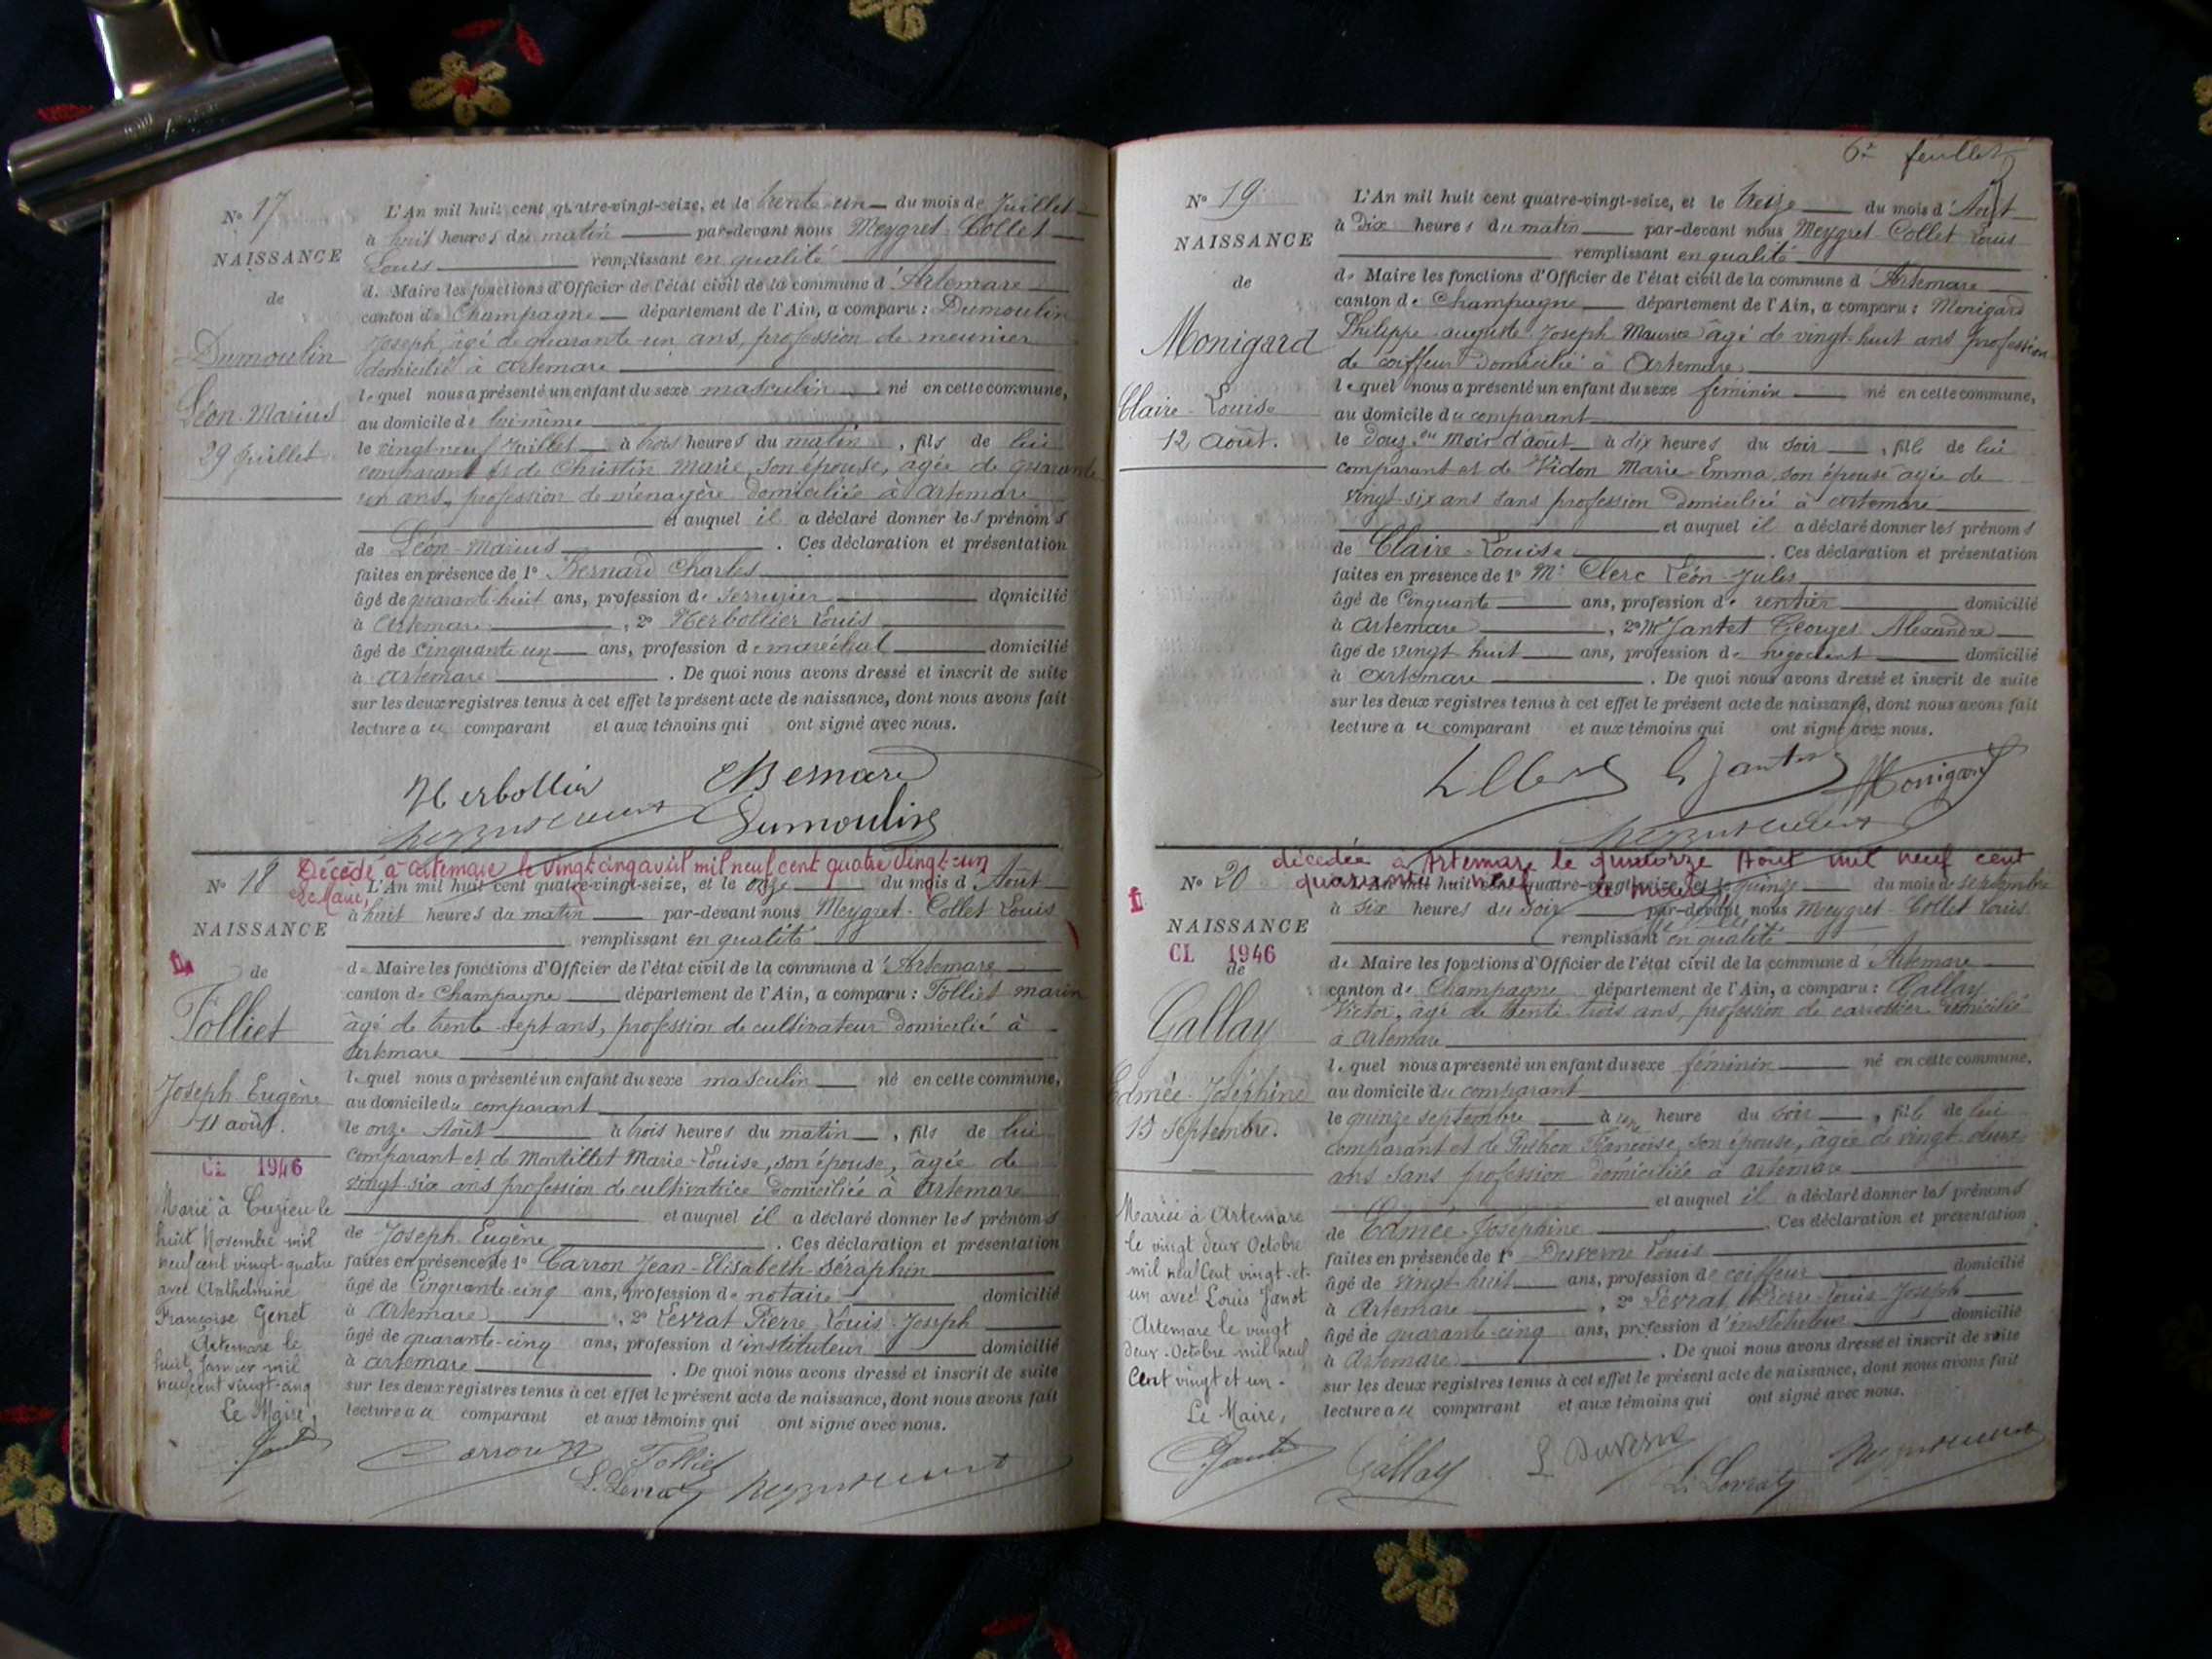 N° 17
NAISSANCE
de
Dumoulin
Léon-Marius
29 Juillet
L'An mil huit cent quatre-vingt-seize, et le trente-un du mois de Juillet
à huit heures du matin par-devant nous Meygret-Collet
Louis remplissant en qualité
de Maire les fonctions d'Officier de l'état civil de la commune d'Artemare
canton de Champagne département de l'Ain, a comparu : Dumoulin
Joseph, âgé de quarante-un ans, profession de meunier
domicilié à Artemare
lequel nous a présenté un enfant du sexe masculin né en cette commune,
au domicile de lui même
le vingt-neuf Juillet à trois heures du matin, fils de lui
comparant et de Christin Marie, son épouse, âgée de quarante
un ans, profession de ménagère domiciliée à Artemare
et auquel il a déclaré donner les prénoms
de Léon-Marius . Ces déclaration et présentation
faites en présence de 1° Bernard Charles
âgé de quarante-huit ans, profession de serrurier domicilié
à Artemare , 2° Herbollier Louis
âgé de cinquante un ans, profession de maréchal domicilié
à Artemare . De quoi nous avons dressé et inscrit de suite
sur les deux registres tenus à cet effet le présent acte de naissance, dont nous avons fait
lecture au comparant et aux témoins qui ont signé avec nous.
Herbollier Bernard
Dumoulin
Décédé à Artemare le vingt-cinq avril mil neuf cent quatre vingt-un
Le Maire,
N° 18
NAISSANCE
de
Tolliet
Joseph Eugène
11 août.
CL 1946
Marié à Cuzieu le
huit Novembre mil
neuf cent vingt-quatre
avec Anthelmine
Françoise Genet
Artemare le
huit Janvier mil
neuf cent vingt-cinq
Le Maire,
L'An mil huit cent quatre-vingt-seize, et le onze du mois d'Août
à huit heures du matin par-devant nous Meygret-Collet Louis
remplissant en qualité
de Maire les fonctions d'Officier de l'état civil de la commune d'Artemare
canton de Champagne département de l'Ain, a comparu : Tolliet Marin
âgé de trente-sept ans, profession de cultivateur domicilié à
Artemare
lequel nous a présenté un enfant du sexe masculin né en cette commune,
au domicile du comparant
le onze Août à trois heures du matin, fils de lui
comparant et de Montillet Marie-Louise, son épouse, âgée de
vingt-six ans profession de cultivatrice domiciliée à Artemare
et auquel il a déclaré donner les prénoms
de Joseph Eugène . Ces déclaration et présentation
faites en présence de 1° Carron Jean-Elisabeth-Séraphin
âgé de Cinquante-cinq ans, profession de notaire domicilié
à Artemare , 2° Levrat Pierre-Louis-Joseph
âgé de quarante-cinq ans, profession d'instituteur domicilié
à Artemare . De quoi nous avons dressé et inscrit de suite
sur les deux registres tenus à cet effet le présent acte de naissance, dont nous avons fait
lecture au comparant et aux témoins qui ont signé avec nous.
Tolliet
L. Levrat
6e feuillet
N° 19
NAISSANCE
de
Monigard
Claire-Louise
12 Août.
L'An mil huit cent quatre-vingt-seize, et le treize du mois d'Août
à dix heures du matin par-devant nous Meygret-Collet Louis
remplissant en qualité
de Maire les fonctions d'Officier de l'état civil de la commune d'Artemare
canton de Champagne département de l'Ain, a comparu : Monigard
Philippe Auguste Joseph Maurice âgé de vingt-huit ans profession
de coiffeur domicilié à Artemare
lequel nous a présenté un enfant du sexe féminin né en cette commune,
au domicile du comparant
le douze du mois d'août à dix heures du soir, fille de lui
comparant et de Vidon Marie-Emma, son épouse âgée de
vingt-six ans sans profession domiciliée à Artemare
et auquel il a déclaré donner les prénoms
de Claire-Louise . Ces déclaration et présentation
faites en présence de 1° Mr Clerc Léon-Jules
âgé de Cinquante ans, profession de rentier domicilié
à Artemare , 2° Mr Jantet Georges Alexandre
âgé de vingt huit ans, profession de négociant domicilié
à Artemare . De quoi nous avons dressé et inscrit de suite
sur les deux registres tenus à cet effet le présent acte de naissance, dont nous avons fait
lecture au comparant et aux témoins qui ont signé avec nous.
Monigard
décédée à Artemare le quatorze Août mil neuf cent
quarante neuf le maire
N° 20
NAISSANCE
CL 1946
de
Gallay
Edmée-Joséphine
15 Septembre.
Mariée à Artemare
le vingt deux Octobre
mil neuf Cent vingt-et-
un avec Louis Janot
Artemare le vingt
deux Octobre mil neuf
Cent vingt et un.
Le Maire,
L'An mil huit cent quatre-vingt-seize, et le quinze du mois de septembre
à six heures du soir par-devant nous Meygret-Collet Louis
remplissant en qualité
de Maire les fonctions d'Officier de l'état civil de la commune d'Artemare
canton de Champagne département de l'Ain, a comparu : Gallay
Victor, âgé de trente-trois ans, profession de carrossier domicilié
à Artemare
lequel nous a présenté un enfant du sexe féminin né en cette commune,
au domicile du comparant
le quinze septembre à une heure du soir, fille de lui
comparant et de Françoise, son épouse, âgée de vingt deux
ans sans profession domiciliée à Artemare
et auquel il a déclaré donner les prénoms
de Edmée-Joséphine . Ces déclaration et présentation
faites en présence de 1° Duverne Louis
âgé de vingt-huit ans, profession de coiffeur domicilié
à Artemare , 2° Levrat Pierre-Louis-Joseph
âgé de quarante-cinq ans, profession d'instituteur domicilié
à Artemare . De quoi nous avons dressé et inscrit de suite
sur les deux registres tenus à cet effet le présent acte de naissance, dont nous avons fait
lecture au comparant et aux témoins qui ont signé avec nous.
Gallay L Duverne L. Levrat